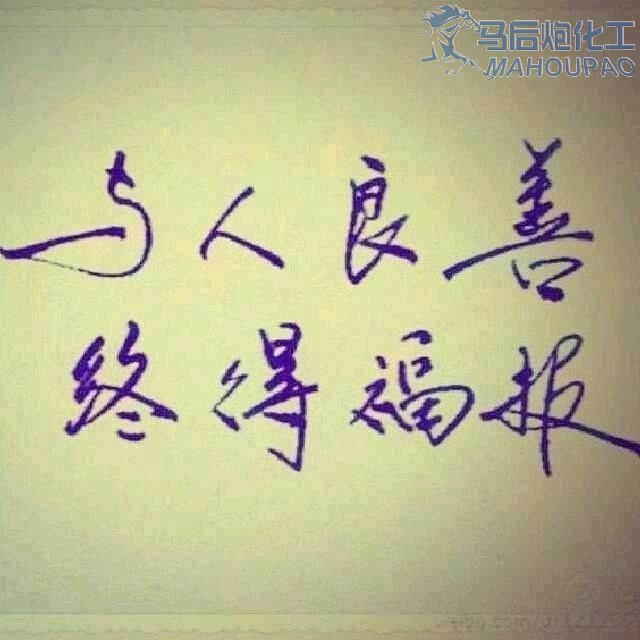 马后炮化工
MAHOUPAO
与人良善
终得福报